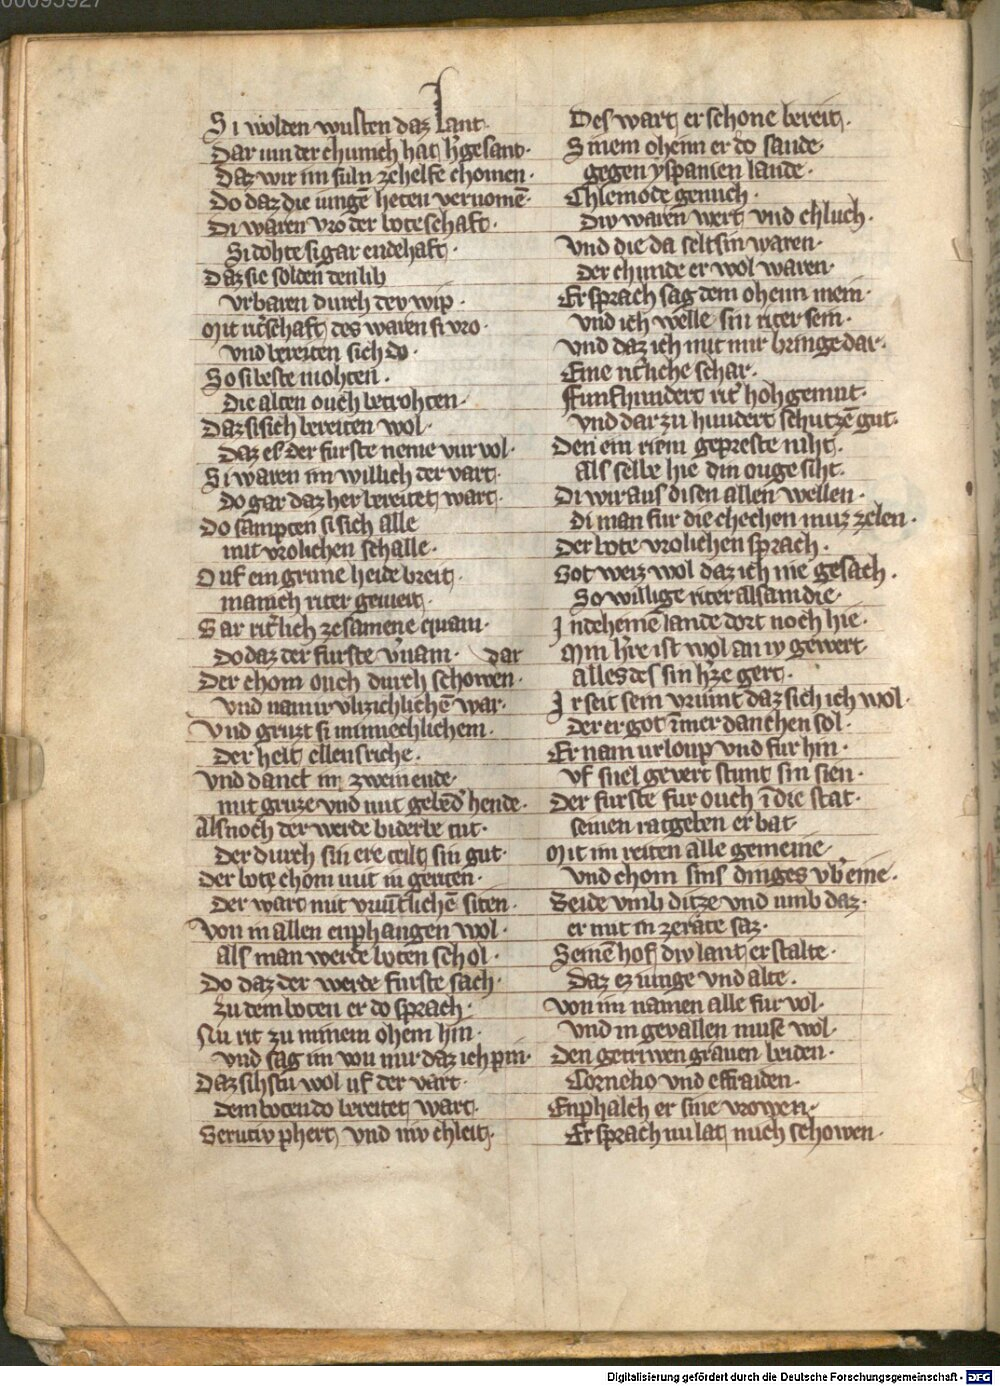 00095927
Si wolden wusten daz lant·
Dar um der chunich hat h̓ gesant·
Daz wir im suln zehelfe chomen·
Do daz die iungē heten vernomē·
Di waren vro der boteschaft·
Si dohte si gar endehaft·
Daz sie solden den lib
vrbaren durch dev wip·
Mit rit̓schaft des waren si vro·
Vnd bereiten sich do·
So si beste mohten·
Die alten ouch betrohten·
Daz si sich bereiten wol·
Daz ez der furste neme vur vol·
Si waren im willich der vart·
Do gar daz her bereitet wart·
Do sampten si sich alle
mit vrolichen schalle·
Ouf ein grune heide breit·
manich riter gemeit·
Gar rit̓lich zesamene quam·
Do daz der furste v̓nam· dar
Der chom ouch durch schowen·
Vnd nam ir vlizichlichē war·
Vnd gruzt si minnechlichem·
Der helt ellens riche·
Vnd danct in zwein ende·
mit gruze vnd mit gebēd̓ hende·
Als noch der werde biderbe tut·
Der durch sin ere teilt sin gut·
Der bote chom mit in geriten·
Der wart mit vriūtlichē siten·
Von in allen enphangen wol·
Als man werde boten schol·
Do daz der werde furste sach·
Zu dem boten er do sprach·
Nu rit zu minem ohem hin·
Vnd sag im wu mir daz ich pin·
Daz sihstu wol uf der vart·
Dem boten do bereitet wart·
Gerutiv phert vnd niv chleit·
Des wart er schone bereit·
Sinem ohenn er do sande·
gegen yspanien lande·
Chlemode genuch·
Div waren wert vnd chluch·
Vnd die da seltsin waren·
Der chunde er wol waren·
Er sprach sag dem ohenn mein·
Vnd ich welle sin riter sein·
Vnd daz ich mit mir bringe dar·
Eine rit̓liche schar·
Funfhundert rit̓ hohgemut·
Vnd dar zu hundert schutzē gut·
Den ein riem gepreste niht·
Als selbe hie din ouge siht·
Di wir aus disen allen wellen·
Di man fur die chechen muz zelen·
Der bote vrolichen sprach·
Got weiz wol daz ich nie gesach·
So willige riter alsam die·
In deheinē lande dort noch hie·
Min h̓re ist wol an iv gewert·
alles des sin h̓ze gert·
Ir seit sein vriunt daz sich ich wol·
Der er got īmer danchen sol·
Er nam urloup vnd fur hin·
vf snel gevert stunt sin sien·
Der furste fur ouch ī die stat·
seinen ratgeben er bat·
Mit im reiten alle gemeine·
Vnd chom sins dinges vb̓ eine·
Beide vmb ditze vnd umb daz·
er mit in zerate saz·
Seinē hof div lant er stalte·
Daz ez iunge vnd alte·
Von im namen alle fur vol·
Vnd in gevallen muse wol·
Den getriwen grauen beiden·
Cornelio vnd effraiden·
Enphalch er sine vrowen·
Er sprach nu lat mich schowen·
Digitalisierung gefördert durch die Deutsche Forschungsgemeinschaft - DFG